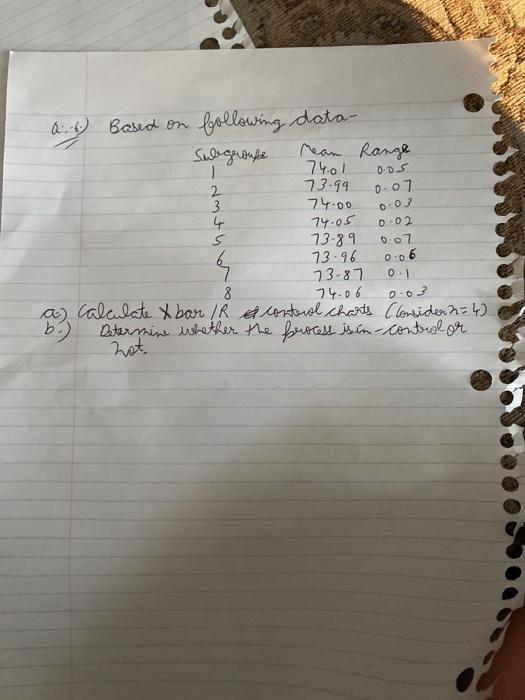 Q.-6.) Based on following data-
Subgroups Mean Range
1 74.01 0.05
2 73.99 0.07
3 74.00 0.03
4 74.05 0.02
5 73.89 0.07
6 73.96 0.06
7 73.87 0.1
8 74.06 0.03
a) Calculate X bar / R control charts (Consider n=4)
b.) Determine whether the process is in-control or
not.